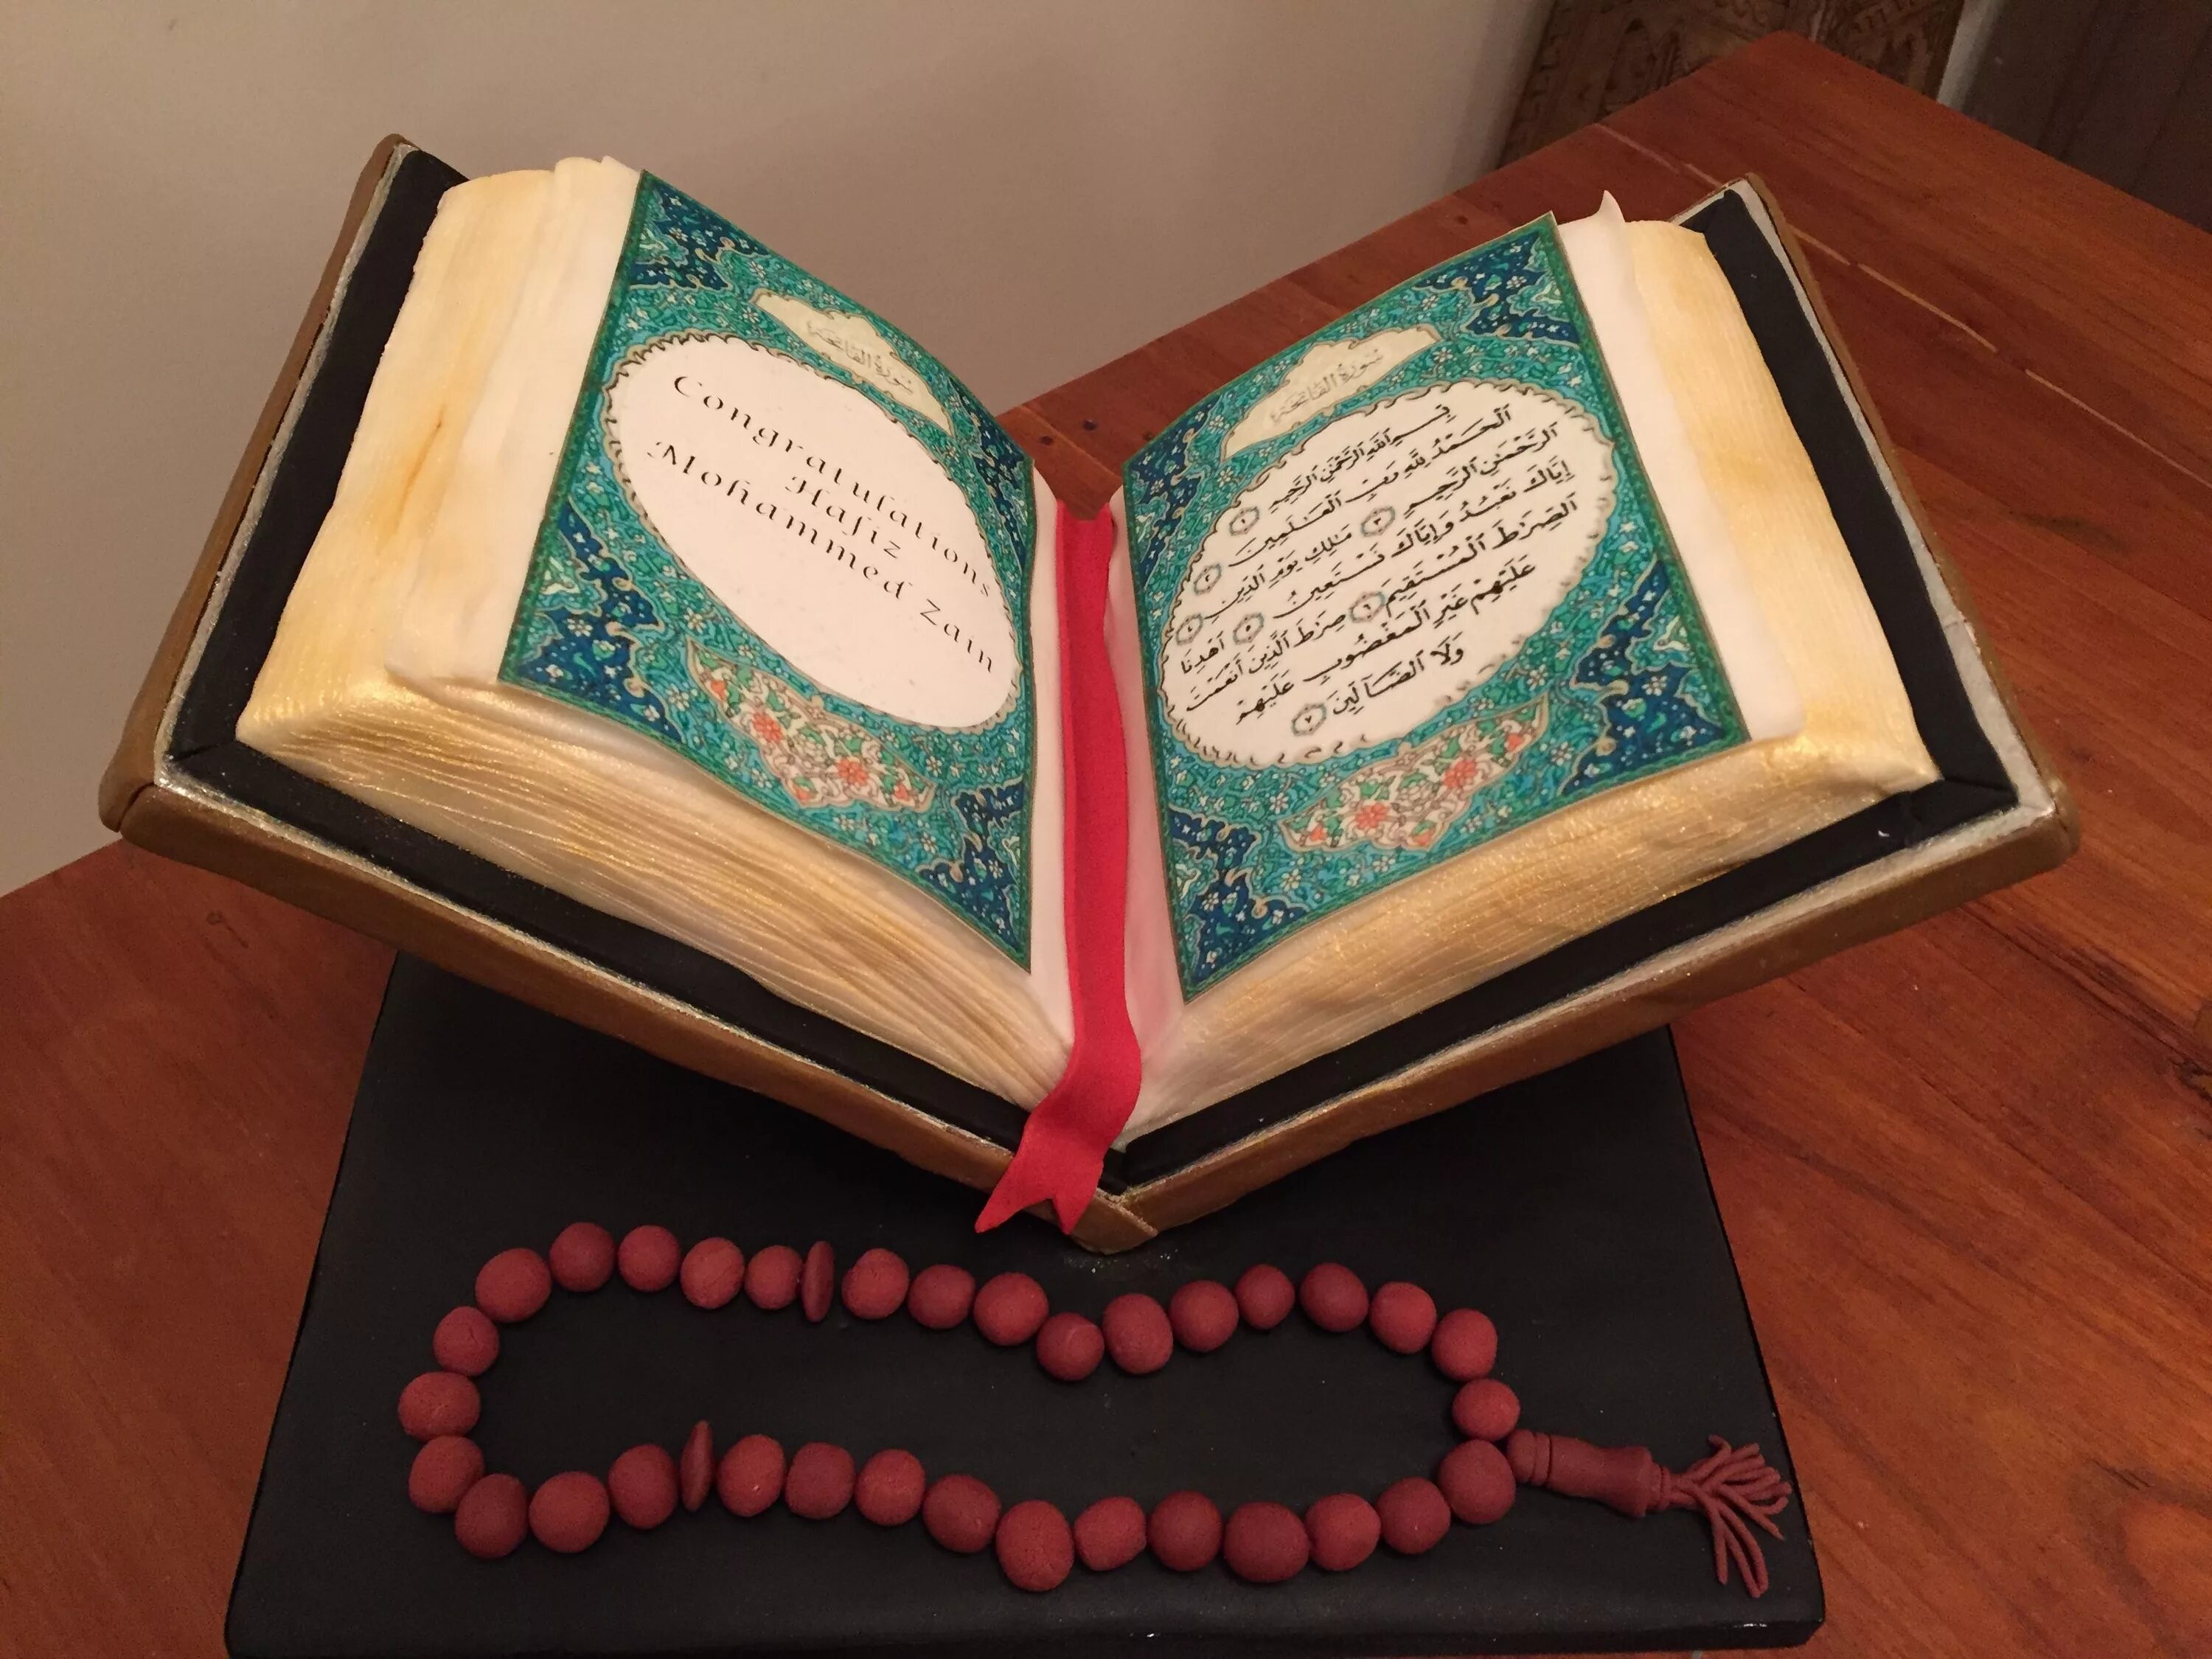 سُورَةُ الفَاتِحَةِ
Congratulations
Hafiz
Mohammed Zain
سُورَةُ الفَاتِحَةِ
بِسْمِ اللَّهِ الرَّحْمَٰنِ الرَّحِيمِ ١
الْحَمْدُ لِلَّهِ رَبِّ الْعَٰلَمِينَ ٢
الرَّحْمَٰنِ الرَّحِيمِ ٣ مَٰلِكِ يَوْمِ الدِّينِ ٤
إِيَّاكَ نَعْبُدُ وَإِيَّاكَ نَسْتَعِينُ ٥ اهْدِنَا
الصِّرَٰطَ الْمُسْتَقِيمَ ٦ صِرَٰطَ الَّذِينَ أَنْعَمْتَ
عَلَيْهِمْ غَيْرِ الْمَغْضُوبِ عَلَيْهِمْ
وَلَا الضَّآلِّينَ ٧